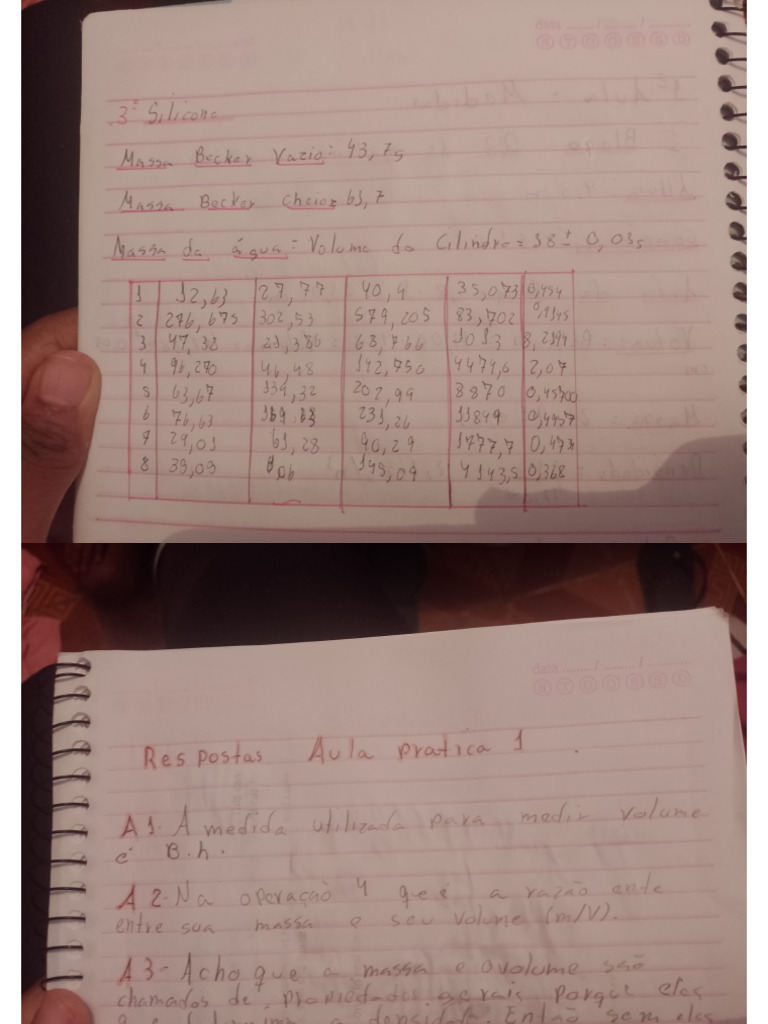 data ......./......./.......
3º Silicone
Massa Becker Vazio: 43,7g
Massa Becker cheio: 63,7
Massa da água: Volume do Cilindro = 38 ± 0,03g
1 12,63 27,77 40,4 35,073 0,454
2 276,675 302,53 579,205 83,702
3 47,38 21,386 68,766 1013
4 96,270 46,48 142,750 4474,6 2,07
5 63,67 139,32 202,99 8870
6 76,63 231,26 11849
7 29,01 61,28 90,29 1777,7
8 39,09 149,09 4143,5 0,368
data ......./......./.......
Respostas Aula pratica 1
A1- A medida utilizada para medir volume
é B.h.
A2- Na operação 4 que é a razão ente
entre sua massa e seu volume (m/V).
A3- Acho que a massa e o volume são
chamados de, propiedades gerais porque eles
a densidade. Então sem eles